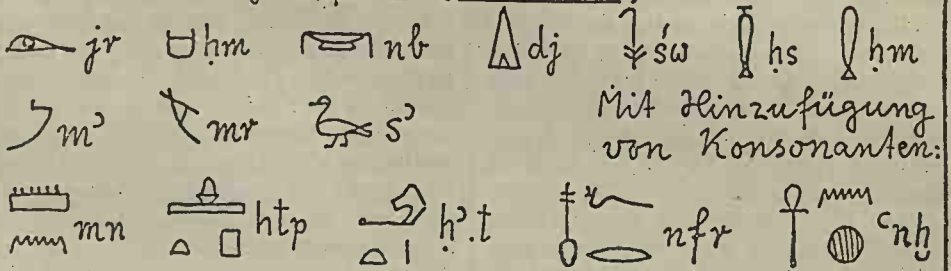 jr ḥm nb dj św ḥs ḥm
mꜣ mr sꜣ Mit Hinzufügung
von Konsonanten:
mn htp ḥꜣ.t nfr ꜥnḫ